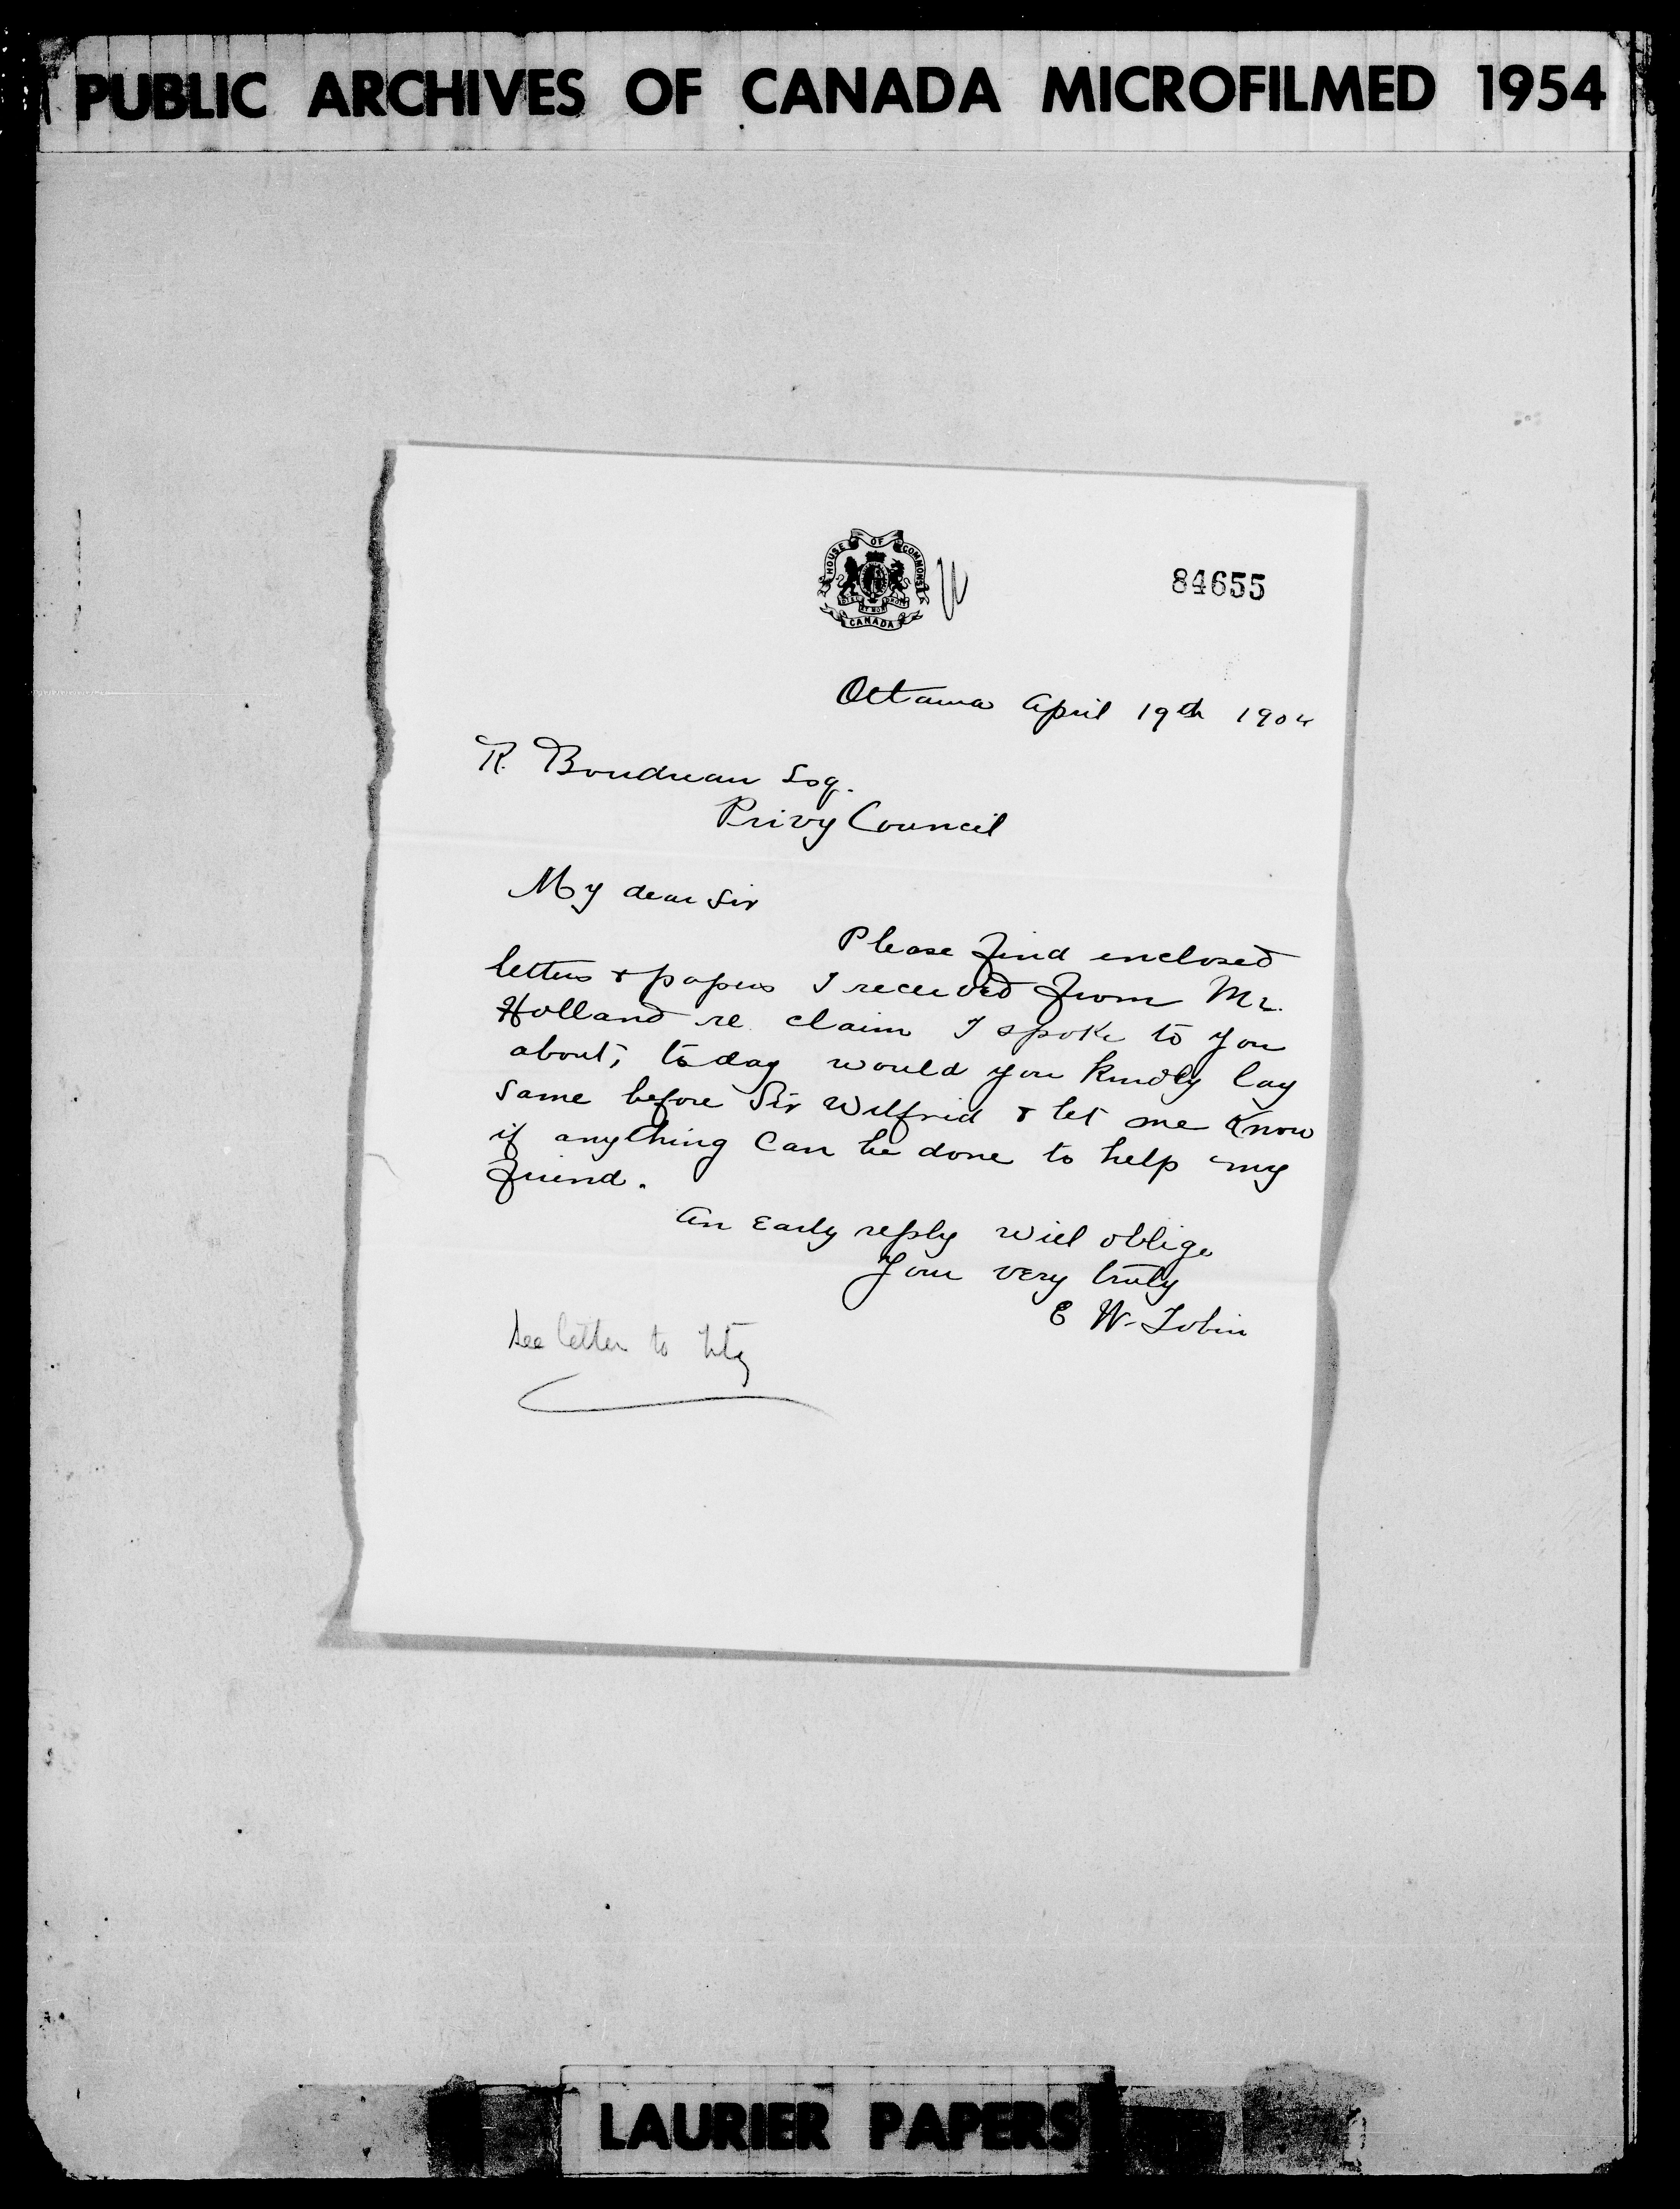 PUBLIC ARCHIVES OF CANADA MICROFILMED 1954
HOUSE OF COMMONS
CANADA
84655
Ottawa April 19th 1904
R. Boudreau Esq.
Privy Council
My dear Sir
Please find enclosed
letters & papers I received from Mr.
Holland re claim I spoke to you
about, today would you kindly lay
same before Sir Wilfrid & let me know
if anything can be done to help my
friend.
An Early reply will oblige
Your very truly
E W. Tobin
See letter to
LAURIER PAPERS